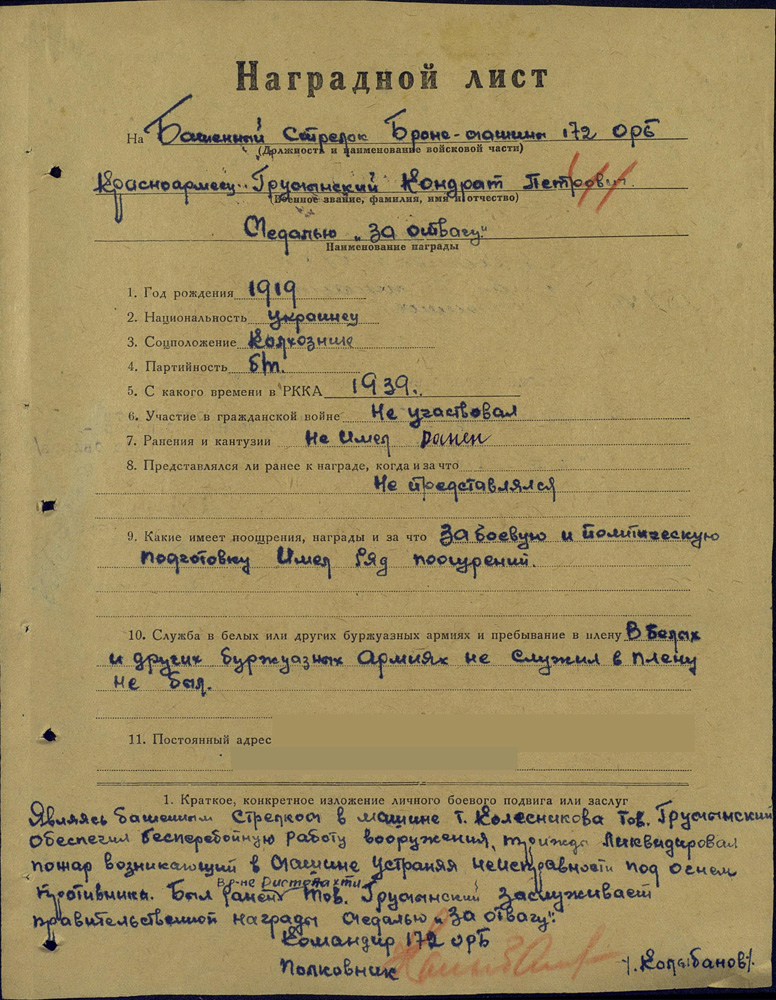 Наградной лист
На Башенный Стрелок Броне-машины 172 ОРБ
(Должность и наименование войсковой части)
Красноармеец Грушынский Кондрат Петрович
(Военное звание, фамилия, имя и отчество)
Медалью „За отвагу“
Наименование награды
1. Год рождения 1919
2. Национальность украинец
3. Соцположение Колхозник
4. Партийность б/п.
5. С какого времени в РККА 1939.
6. Участие в гражданской войне Не участвовал
7. Ранения и кантузии Не Имел ранен
8. Представлялся ли ранее к награде, когда и за что
Не представлялся
9. Какие имеет поощрения, награды и за что За боевую и политическую
подготовку Имел Ряд поощрений.
10. Служба в белых или других буржуазных армиях и пребывание в плену В белых
и других буржуазных Армиях не служил в плену
не был.
11. Постоянный адрес
1. Краткое, конкретное изложение личного боевого подвига или заслуг
Являясь башенным стрелком в машине т. Колесникова Тов. Грушынский
Обеспечил бесперебойную работу вооружения, трижды Ликвидировал
пожар возникающий в Машине устраняя неисправности под огнем
в р-не
противника. Был ранен Тов. Грушынский заслуживает
правительственной награды Медалью „За отвагу“.
Командир 172 ОРБ
Полковник /Колыбанов/.